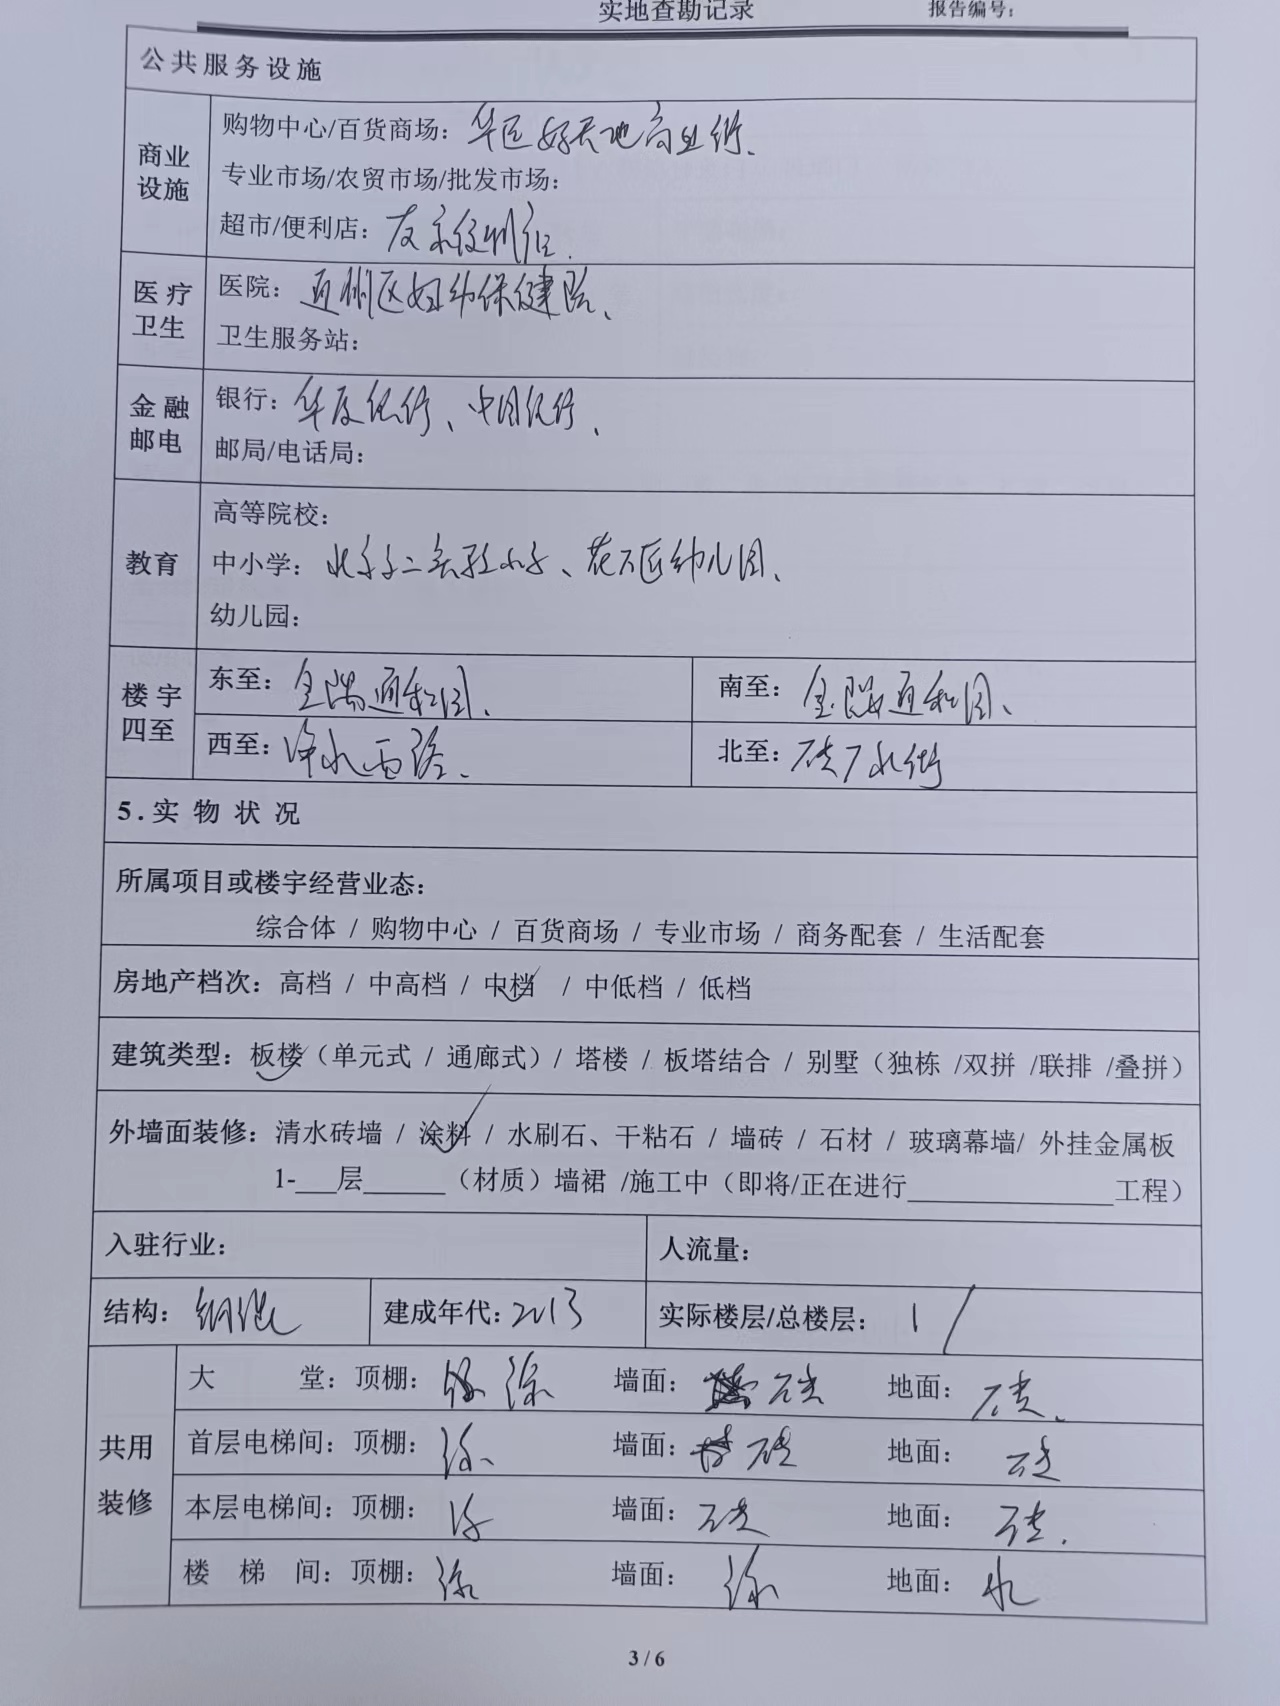 实地查勘记录 报告编号：
公共服务设施
商业设施
购物中心/百货商场：华远好天地商业街、
专业市场/农贸市场/批发市场：
超市/便利店：友京便利店.
医疗卫生
医院：通州区妇幼保健院、
卫生服务站：
金融邮电
银行：华夏银行、中国银行、
邮局/电话局：
教育
高等院校：
中小学： 实验小学、花石匠幼儿园、
幼儿园：
楼宇四至
东至：金隅通和园、 南至：金隅通和园、
西至：净水西路、 北至：砖厂北街
5.实物状况
所属项目或楼宇经营业态：
综合体 / 购物中心 / 百货商场 / 专业市场 / 商务配套 / 生活配套
房地产档次：高档 / 中高档 / 中档 / 中低档 / 低档
建筑类型：板楼（单元式 / 通廊式）/ 塔楼 / 板塔结合 / 别墅（独栋 /双拼 /联排 /叠拼）
外墙面装修：清水砖墙 / 涂料 / 水刷石、干粘石 / 墙砖 / 石材 / 玻璃幕墙/ 外挂金属板
1-___层______（材质）墙裙 /施工中（即将/正在进行_______________工程）
入驻行业： 人流量：
结构：钢混 建成年代：2013 实际楼层/总楼层：1 /
共用装修
大堂：顶棚： 涂 墙面：砖 地面：砖、
首层电梯间：顶棚：涂、 墙面：砖 地面：砖
本层电梯间：顶棚：涂 墙面：砖 地面：砖.
楼梯间：顶棚：涂 墙面：涂 地面：水
3 / 6